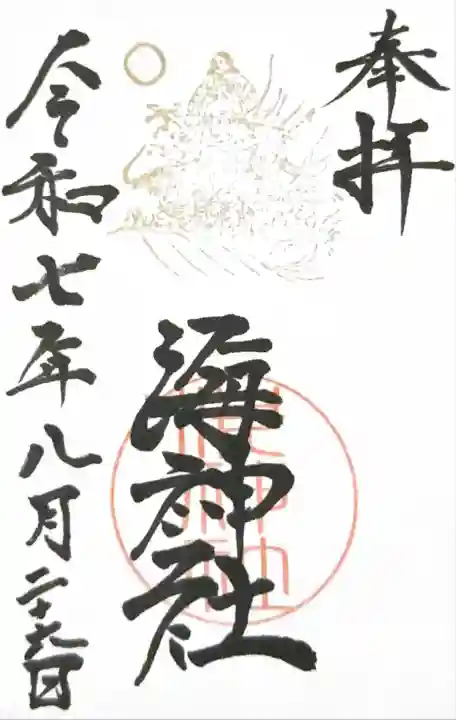 奉拝
海神社
令和七年八月二十六日